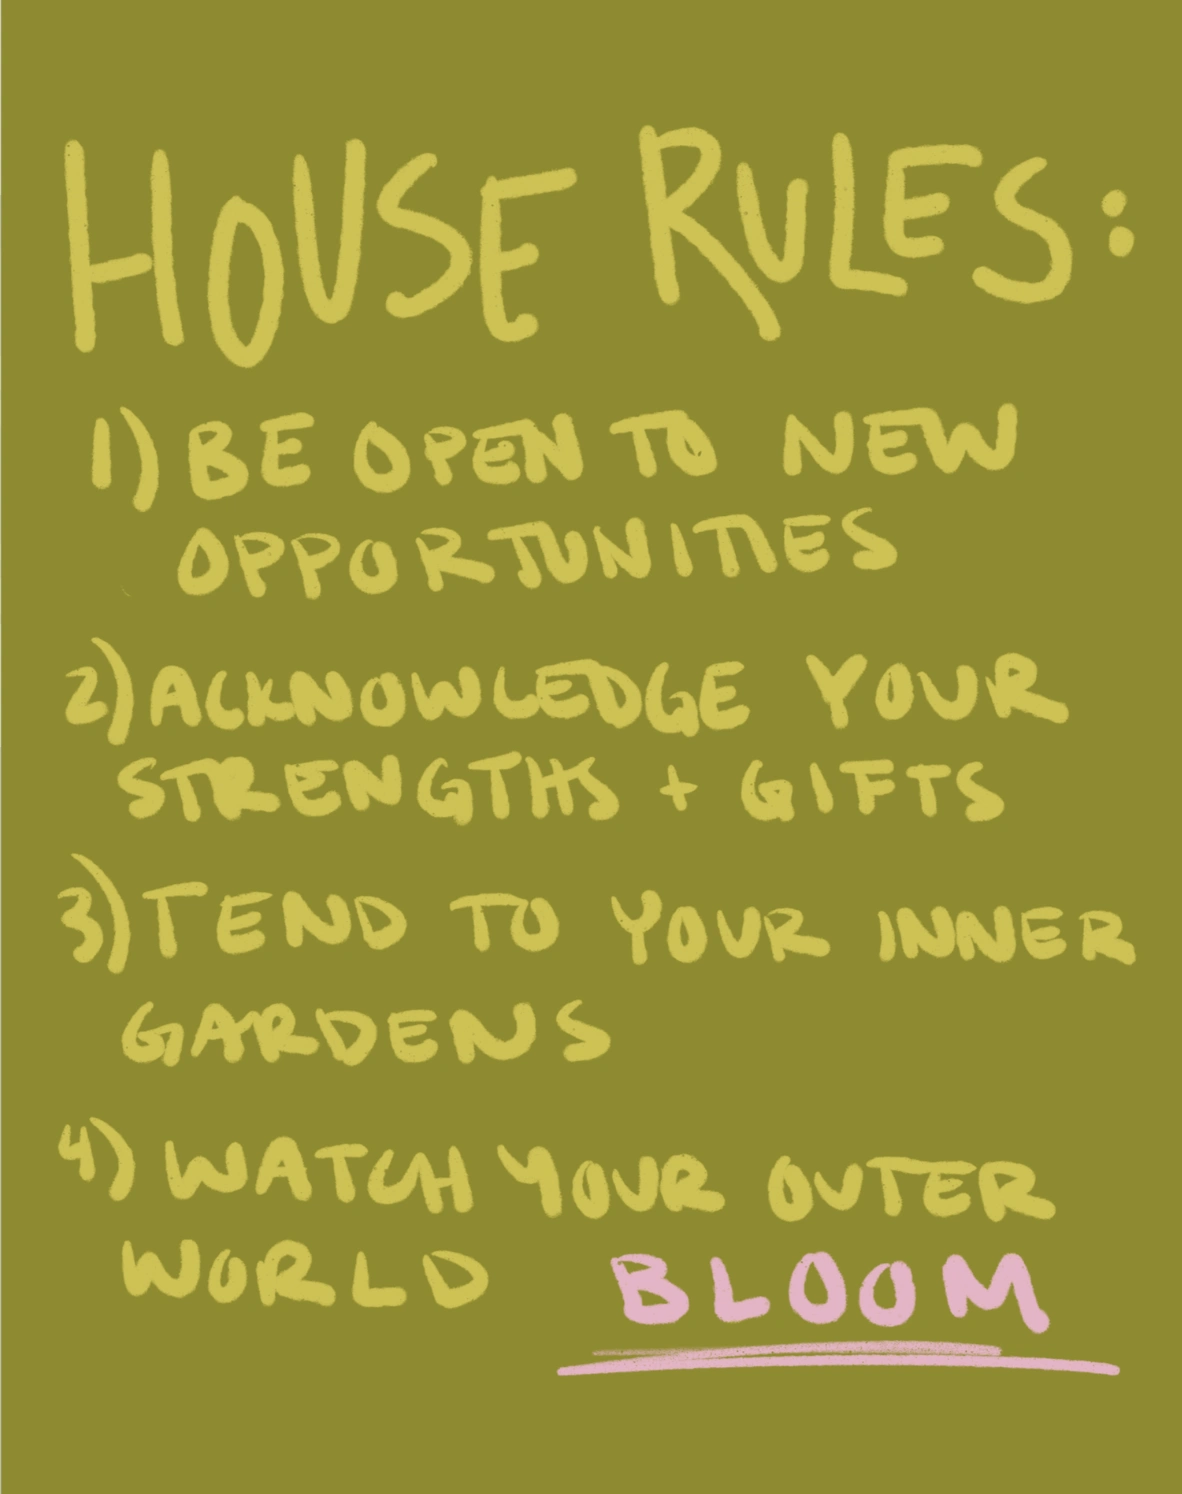 HOUSE RULES:
1) BE OPEN TO NEW
OPPORTUNITIES
2) ACKNOWLEDGE YOUR
STRENGTHS + GIFTS
3) TEND TO YOUR INNER
GARDENS
4) WATCH YOUR OUTER
WORLD BLOOM